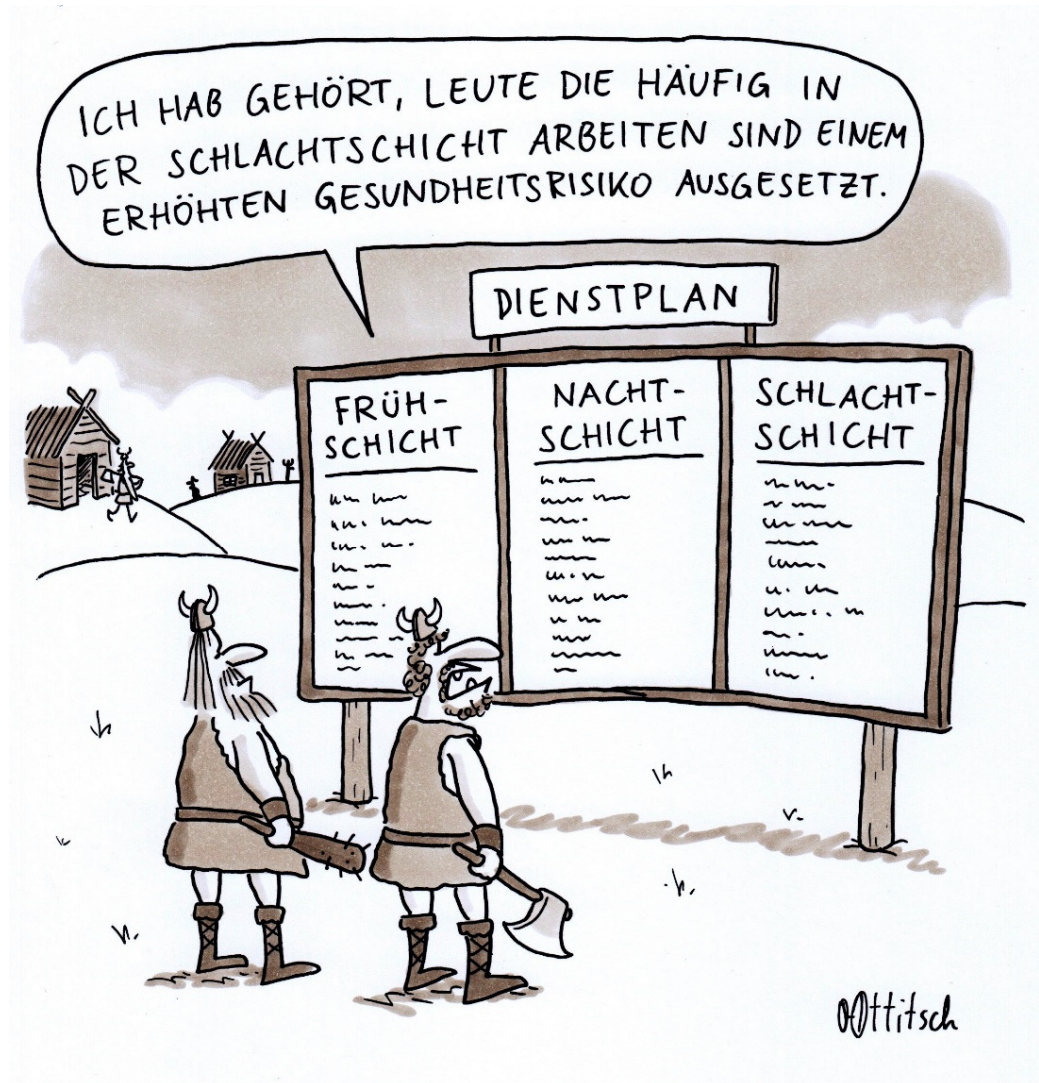 ICH HAB GEHÖRT, LEUTE DIE HÄUFIG IN
DER SCHLACHTSCHICHT ARBEITEN SIND EINEM
ERHÖHTEN GESUNDHEITSRISIKO AUSGESETZT.
DIENSTPLAN
FRÜH-
SCHICHT
NACHT-
SCHICHT
SCHLACHT-
SCHICHT
Ottitsch